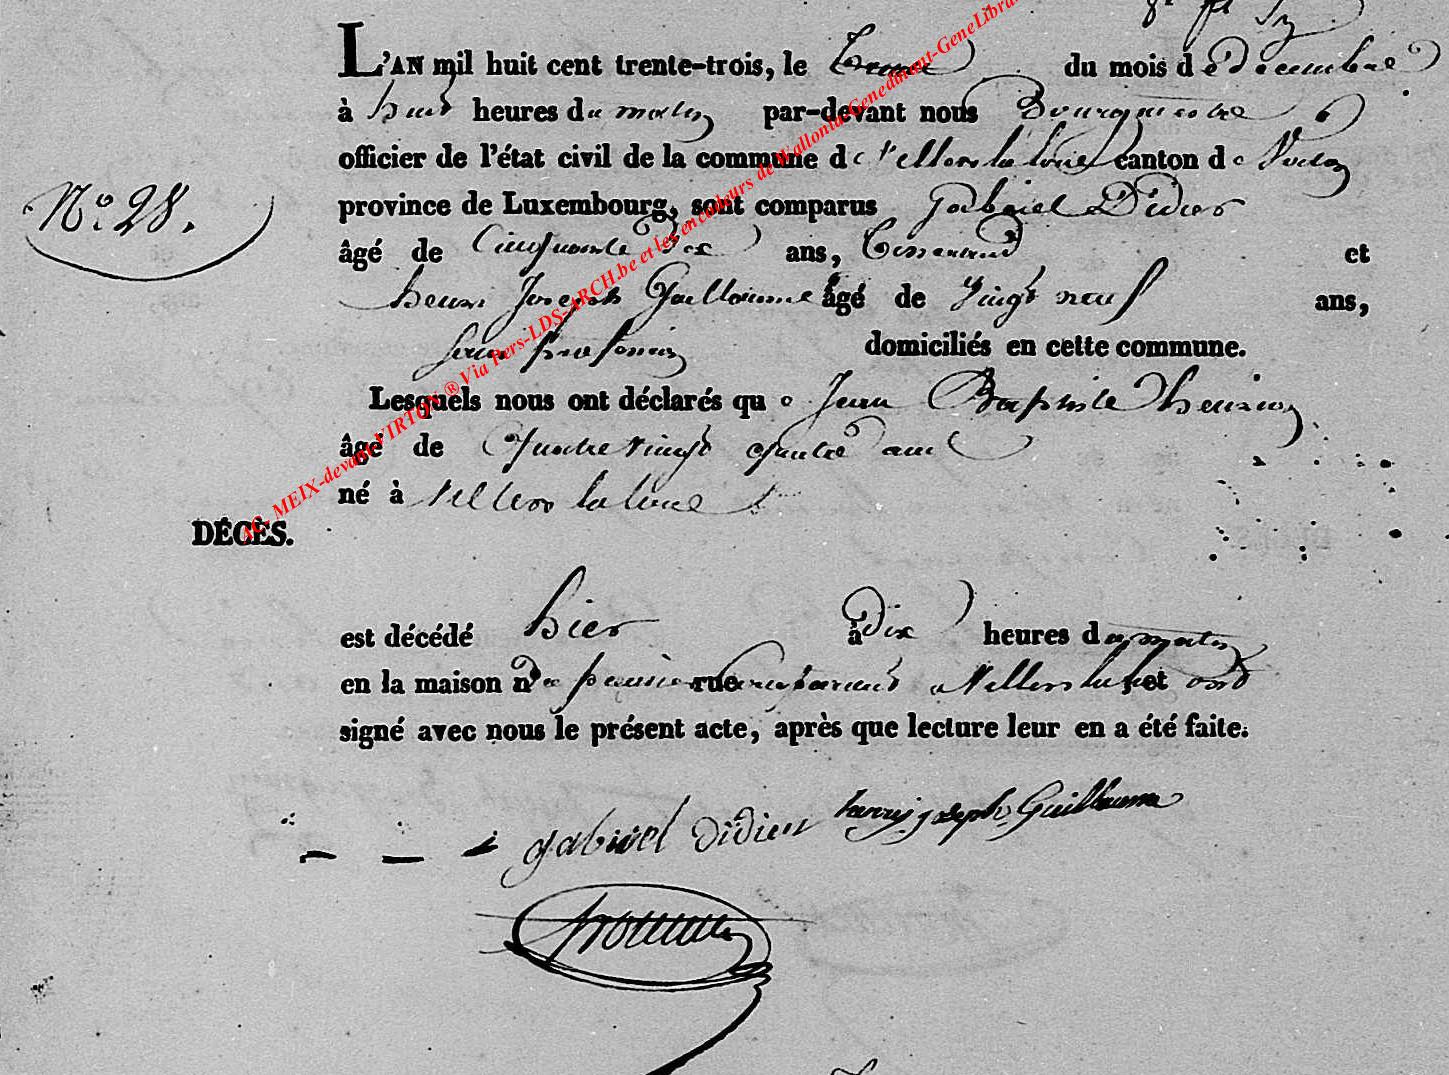 L'AN mil huit cent trente-trois, le treize du mois de décembre
à huit heures du matin par-devant nous Bourgmestre
officier de l'état civil de la commune de Villers la loue canton de Virton
N.° 28.
province de Luxembourg, sont comparus Gabriel Didier
âgé de Cinquante six ans, Tisserand et
henri Joseph Guillaume âgé de Vingt neuf ans,
domiciliés en cette commune.
Lesquels nous ont déclarés que Jean Baptiste henrion
âgé de Quatre vingt quatre ans
né à Villers la loue
DÉCÈS.
est décédé hier à dix heures du matin
en la maison n° rue à Villers la loue et ont
signé avec nous le présent acte, après que lecture leur en a été faite.
gabriel didier henry joseph Guillaume
AC MEIX-devant-VIRTON ® Via Pers-LDS-ARCH.be et les encodeurs de Wallonia-Genedinant-GeneLibra